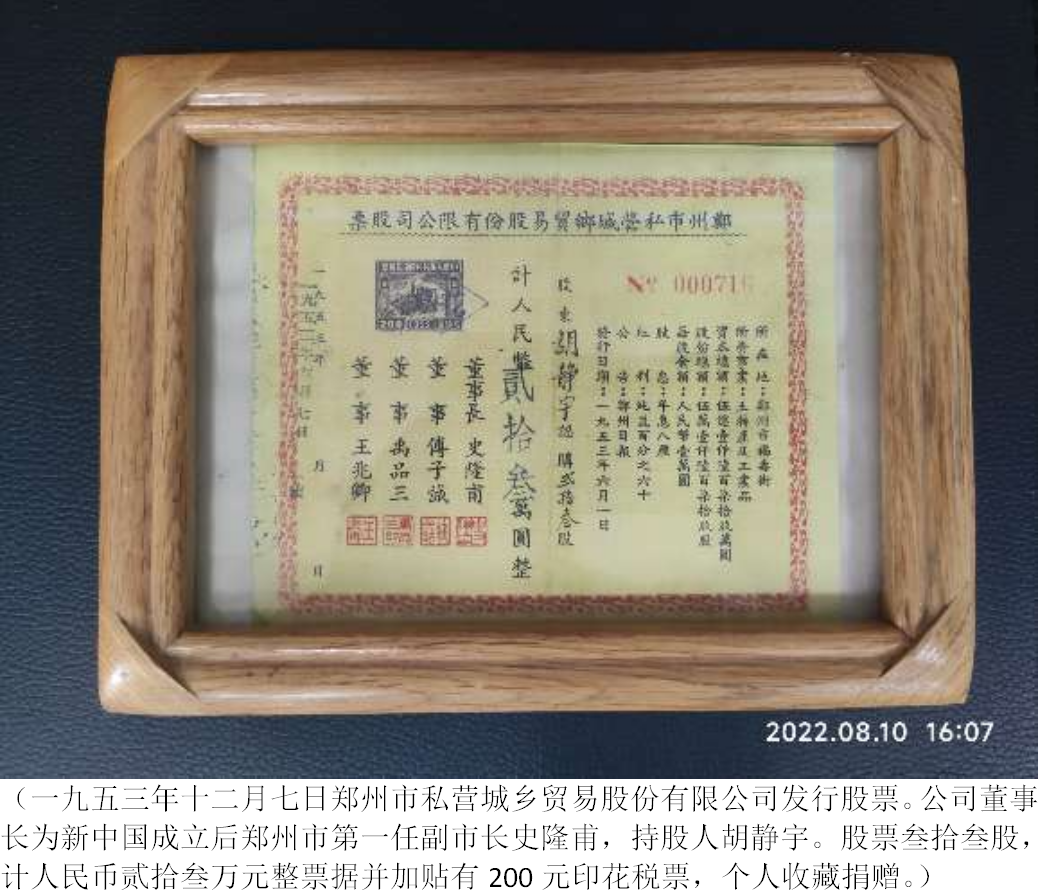 鄭州市私營城鄉貿易股份有限公司股票
No 000716
所在地：鄭州市福壽街
所營事業：土特產及工業品
資本總額：伍億壹仟陸百柒拾玖萬圓
股份總額：伍萬壹仟陸百柒拾玖股
每股金額：人民幣壹萬圓
股息：年息八厘
紅利：純益百分之六十
公告：鄭州日報
發行日期：一九五三年六月一日
股東胡靜宇認購貳拾叁股
計人民幣貳拾叁萬圓整
董事長 史隆甫
董事 傅子誠
董事 禹品三
董事 王兆卿
一九五三年 月 日
2022.08.10 16:07
（一九五三年十二月七日郑州市私营城乡贸易股份有限公司发行股票。公司董事
长为新中国成立后郑州市第一任副市长史隆甫，持股人胡静宇。股票叁拾叁股，
计人民币贰拾叁万元整票据并加贴有 200 元印花税票，个人收藏捐赠。）